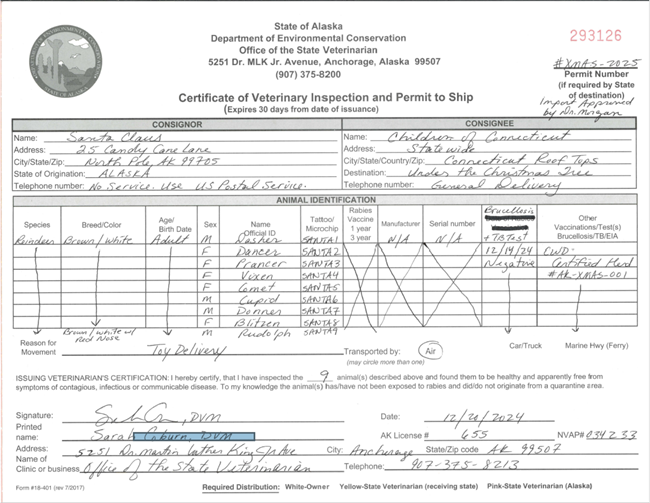 State of Alaska
Department of Environmental Conservation
Office of the State Veterinarian
5251 Dr. MLK Jr. Avenue, Anchorage, Alaska 99507
(907) 375-8200
293126
#XMAS-2025
Permit Number
(if required by State
of destination)
Import Approved
by Dr. Morgan
Certificate of Veterinary Inspection and Permit to Ship
(Expires 30 days from date of issuance)
CONSIGNOR
Name: Santa Claus
Address: 25 Candy Cane Lane
City/State/Zip: North Pole, AK 99705
State of Origination: ALASKA
Telephone number: No Service. Use US Postal Service.
CONSIGNEE
Name: Children of Connecticut
Address: Statewide
City/State/Country/Zip: Connecticut Roof Tops
Destination: Under the Christmas Tree
Telephone number: General Delivery
ANIMAL IDENTIFICATION
Species Breed/Color Age/ Birth Date Sex Name Official ID Tattoo/ Microchip Rabies Vaccine 1 year 3 year Manufacturer Serial number Brucellosis + TB Test Other Vaccinations/Test(s) Brucellosis/TB/EIA
Reindeer Brown/White Adult M Dasher SANTA1 N/A N/A
F Dancer SANTA2 12/14/24 CWD-
F Prancer SANTA3 Negative Certified Herd
F Vixen SANTA4 #AK-XMAS-001
F Comet SANTA5
M Cupid SANTA6
M Donner SANTA7
F Blitzen SANTA8
Brown/white w/ Red Nose M Rudolph SANTA9
Reason for Movement Toy Delivery
Transported by: Air Car/Truck Marine Hwy (Ferry)
(may circle more than one)
ISSUING VETERINARIAN'S CERTIFICATION: I hereby certify, that I have inspected the 9 animal(s) described above and found them to be healthy and apparently free from
symptoms of contagious, infectious or communicable disease. To my knowledge the animal(s) has/have not been exposed to rabies and did/do not originate from a quarantine area.
Signature: DVM
Date: 12/20/2024
Printed name: Sarah Coburn, DVM
AK License # 655 NVAP# 034233
Address: 5251 Dr. Martin Luther King Jr Ave City: Anchorage State/Zip code AK 99507
Name of Clinic or business Office of the State Veterinarian Telephone: 907-375-8213
Form #18-401 (rev 7/2017) Required Distribution: White-Owner Yellow-State Veterinarian (receiving state) Pink-State Veterinarian (Alaska)